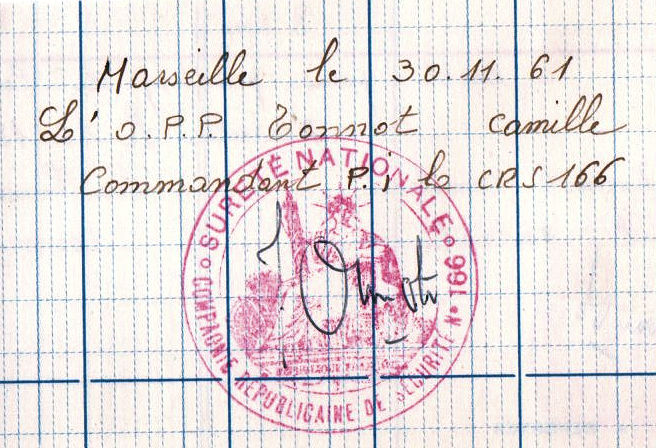 Marseille le 30.11.61
L'O.P.P. Tonnot Camille
Commandant P.i la CRS 166
SURETÉ NATIONALE
COMPAGNIE RÉPUBLICAINE DE SÉCURITÉ N° 166